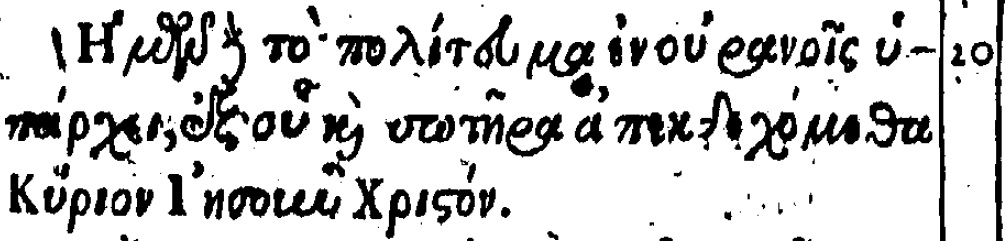 Ἡμῶν γὰρ τὸ πολίτευμα ἐν οὐρανοῖς ὑ- 20
πάρχει, ἐξ οὗ καὶ σωτῆρα ἀπεκδεχόμεθα
Κύριον Ἰησοῦν Χριστόν.